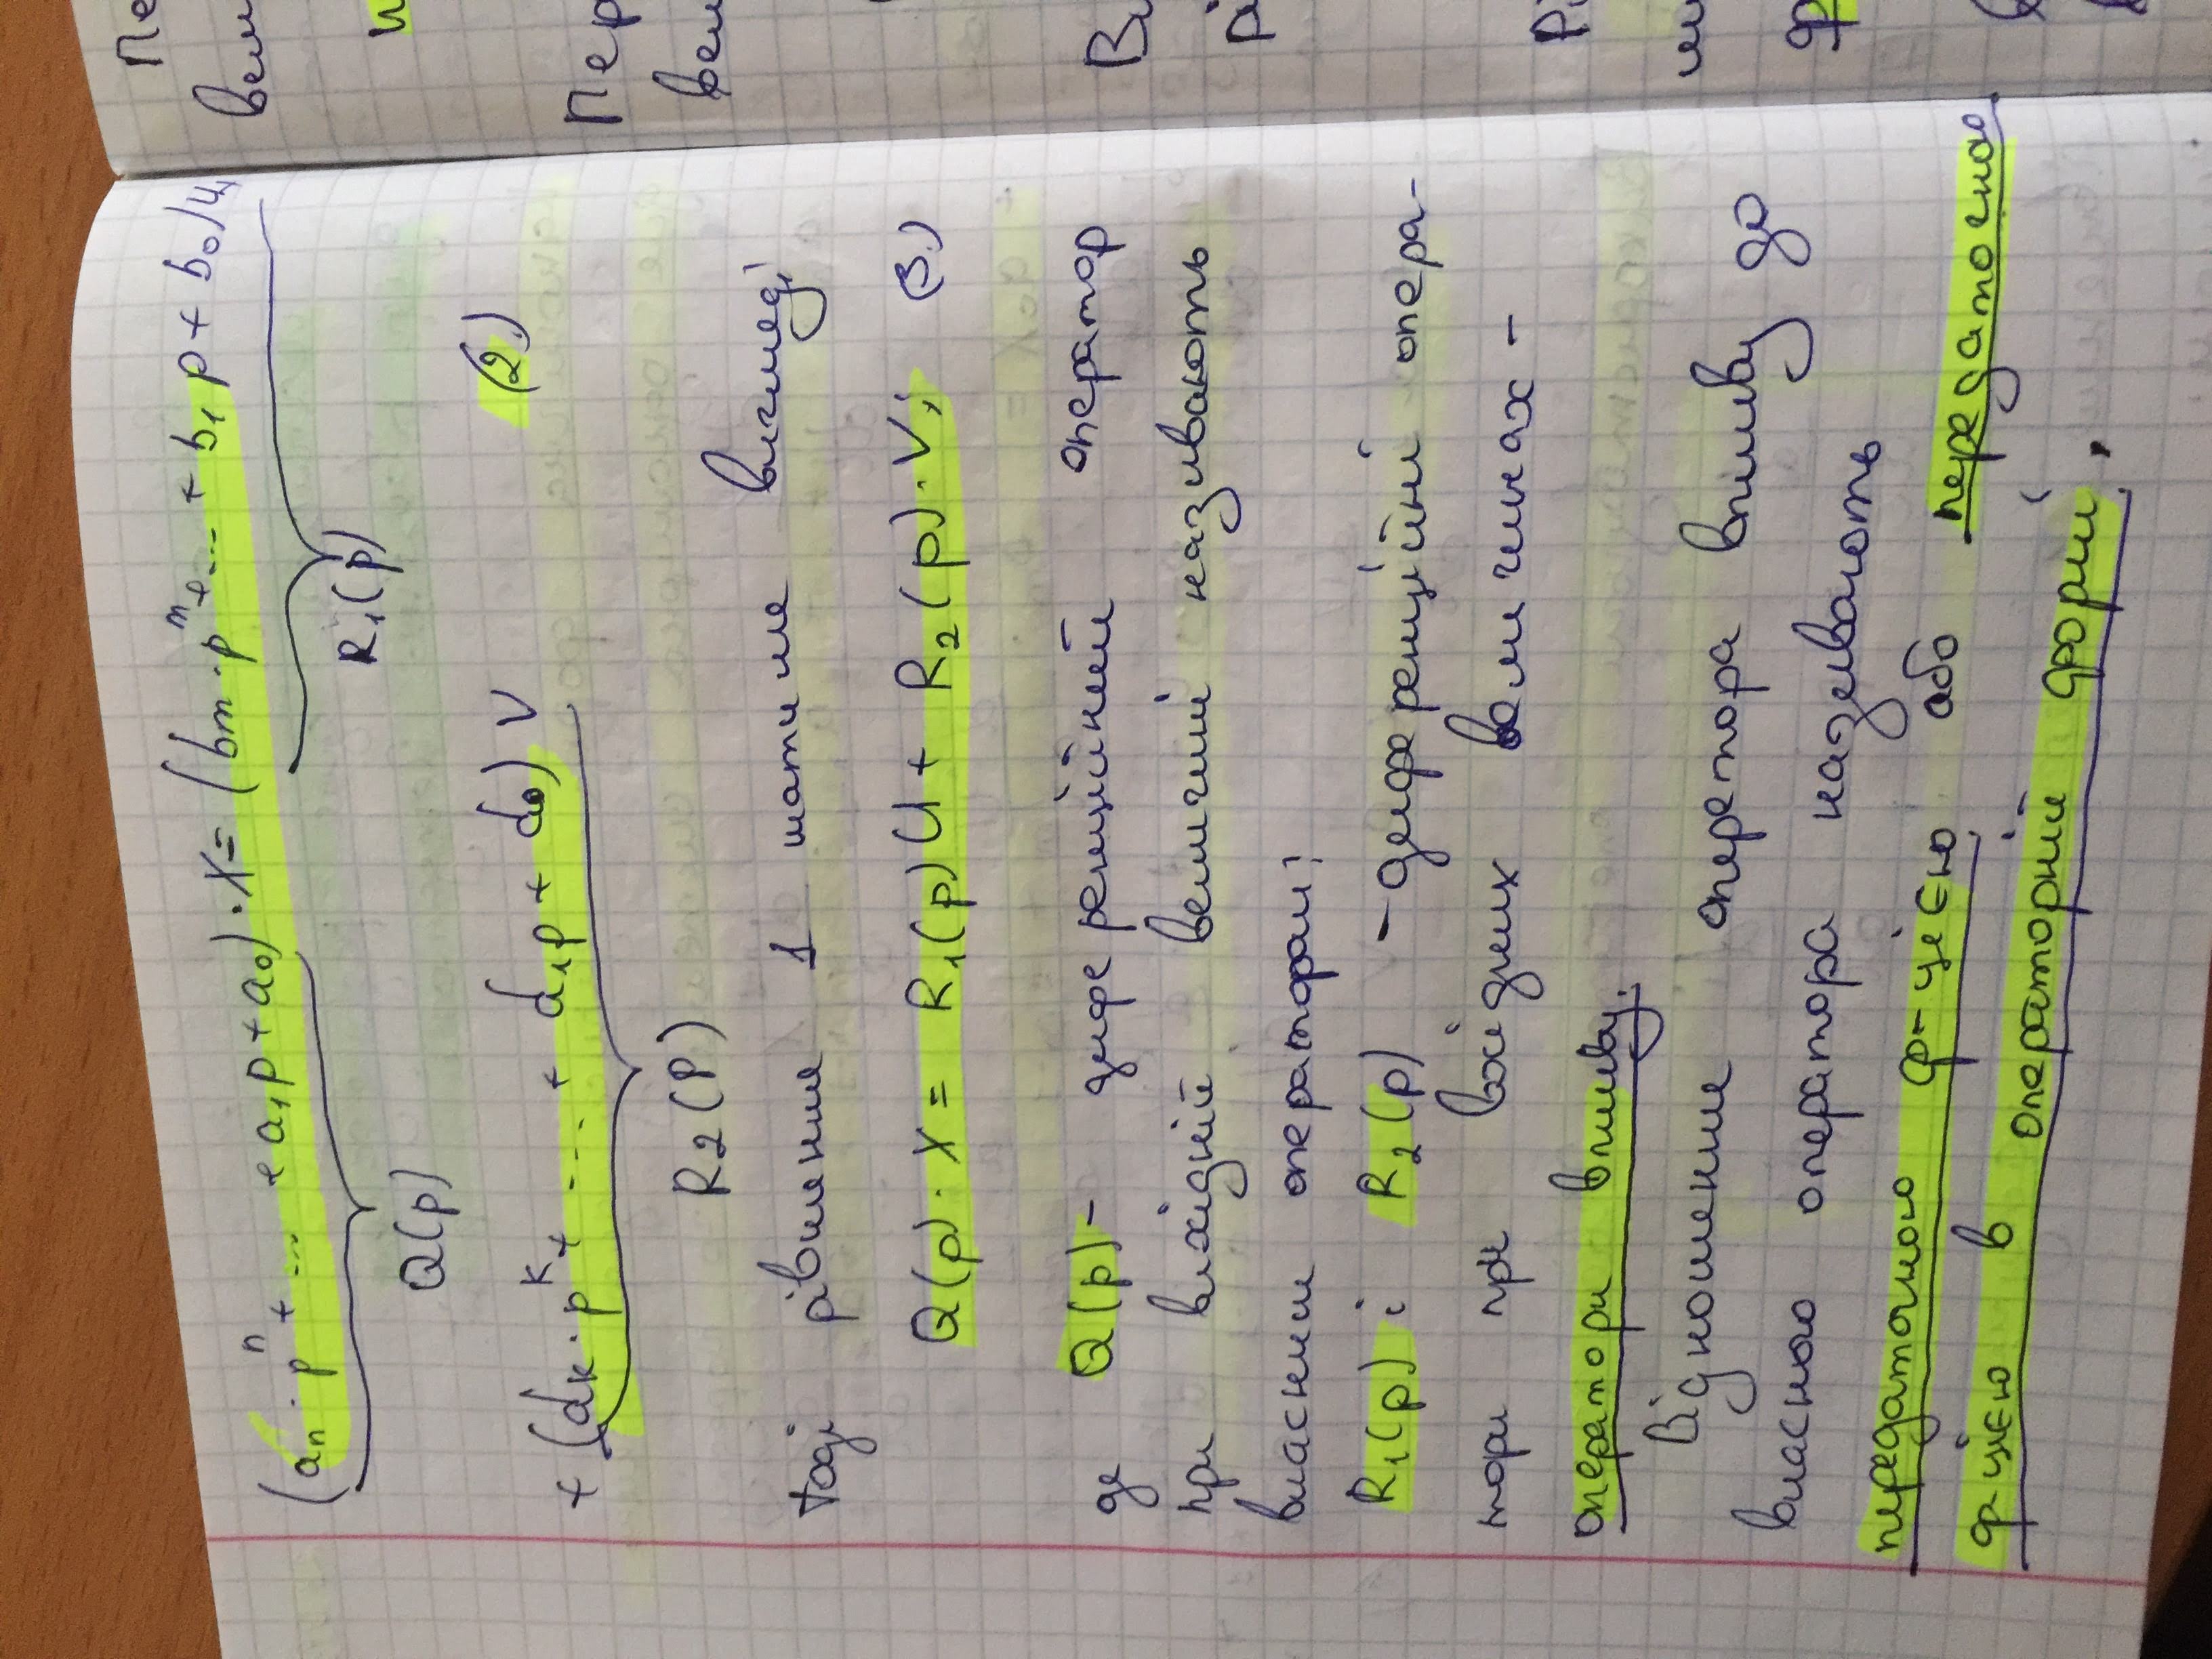 (aₙ · pⁿ + ... + a₁p + a₀) · X = (bm · pᵐ + ... + b₁p + b₀)U
Q(p)
R₁(p)
+ (dк · pᵏ + ... + d₁p + d₀) V (2.)
R₂(P)
тоді рівняння 1 матиме вигляді
Q(p) · X = R₁(p) U + R₂(p) · V; (3.)
де Q(p) - диференційний оператор
при вихідній величині називають
власним оператором;
R₁(p) і R₂(p) - диференційні опера-
тори при вхідних величинах -
оператори впливу.
Відношення оператора впливу до
власного оператора називають
передаточною ф-цією або передаточною
ф-цією в операторній формі.
Пе
вел
Пер
вел
В
рі
Рі